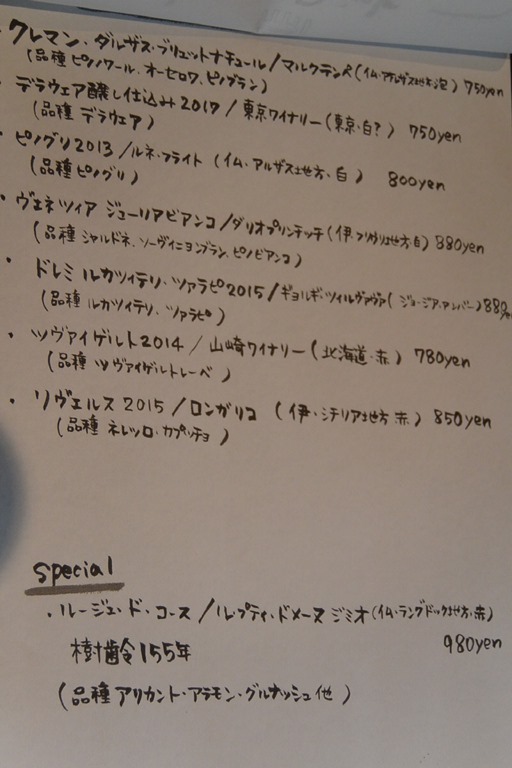 ・クレマン・ダルザス・ブリュットナチュール/マルクテンペ(仏・アルザス地方・泡) 750yen
(品種 ピノノワール、オーセロワ、ピノブラン)
・デラウェア醸し仕込み2017/東京ワイナリー(東京・白?) 750yen
(品種 デラウェア)
・ピノグリ2013/ルネ・フライト(イム・アルザス地方・白) 800yen
(品種 ピノグリ)
・ヴェネツィア ジューリアビアンコ/ダリオプリンチッチ(伊・フリウリ地方 白) 880yen
(品種 シャルドネ、ソーヴィニヨンブラン、ピノビアンコ)
・ドレミ ルカツィテリ・ツァラピ2015/ギョルギ・ツィルヴァヴァ(ジョージア・アンバー)
(品種 ルカツィテリ、ツァラピ)
・ツヴァイゲルト2014/山崎ワイナリー(北海道・赤) 780yen
(品種 ツヴァイゲルトレーベ)
・リヴェルス 2015/ロンガリコ (伊・シチリア地方 赤) 850yen
(品種 ネレッロ・カプッチョ)
special
・ルージュ・ド・コース/ル・プティ・ドメーヌ ジミオ(仏・ラングドック地方・赤)
樹齢155年 980yen
(品種 アリカント・アラモン・グルナッシュ他)